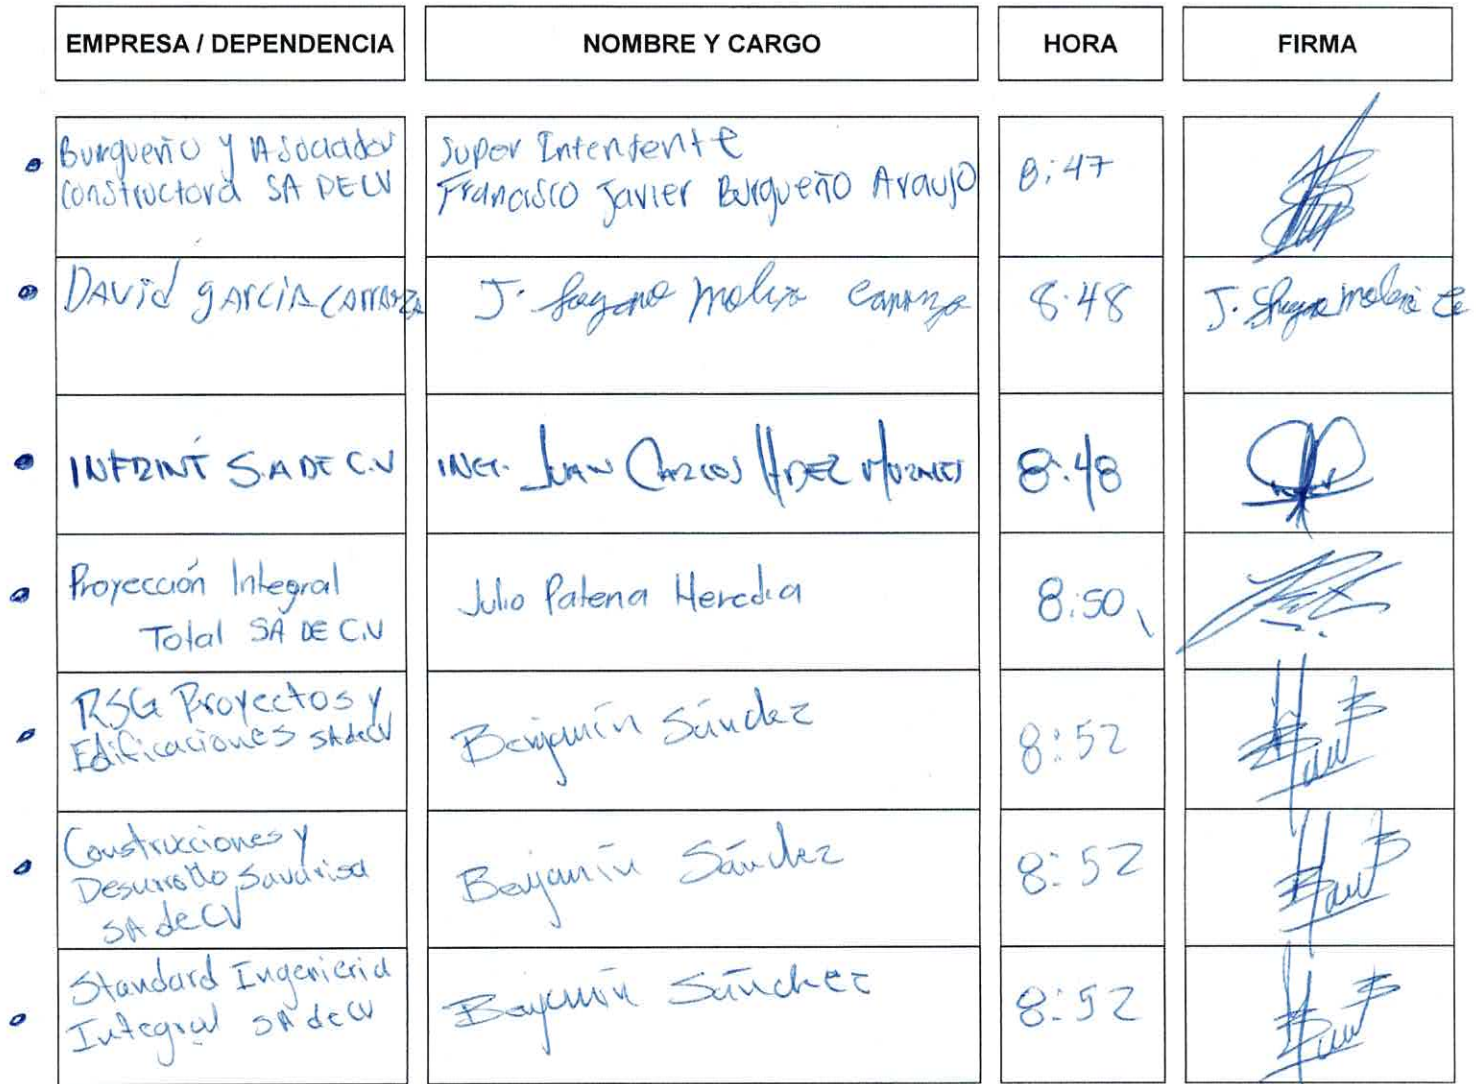 EMPRESA / DEPENDENCIA NOMBRE Y CARGO HORA FIRMA
Burgueño y Asociados
Constructora SA DE CV
Super Intentente
Francisco Javier Burgueño Araujo
8:47
DAVid gARCIA CARRANZA
J. Molina Carranza
8:48
J.
INFRINT S.A DE C.V
ING. JUAN CARLOS HDEZ MORALES
8:48
Proyección Integral
Total SA DE C.V
Julio Patena Heredia
8:50
RSG Proyectos y
Edificaciones SA de CV
Benjamín Sánchez
8:52
Construcciones y
Desarrollo Savarisa
SA de CV
Benjamín Sánchez
8:52
Standard Ingenieria
Integral SA de CV
Benjamín Sánchez
8:52